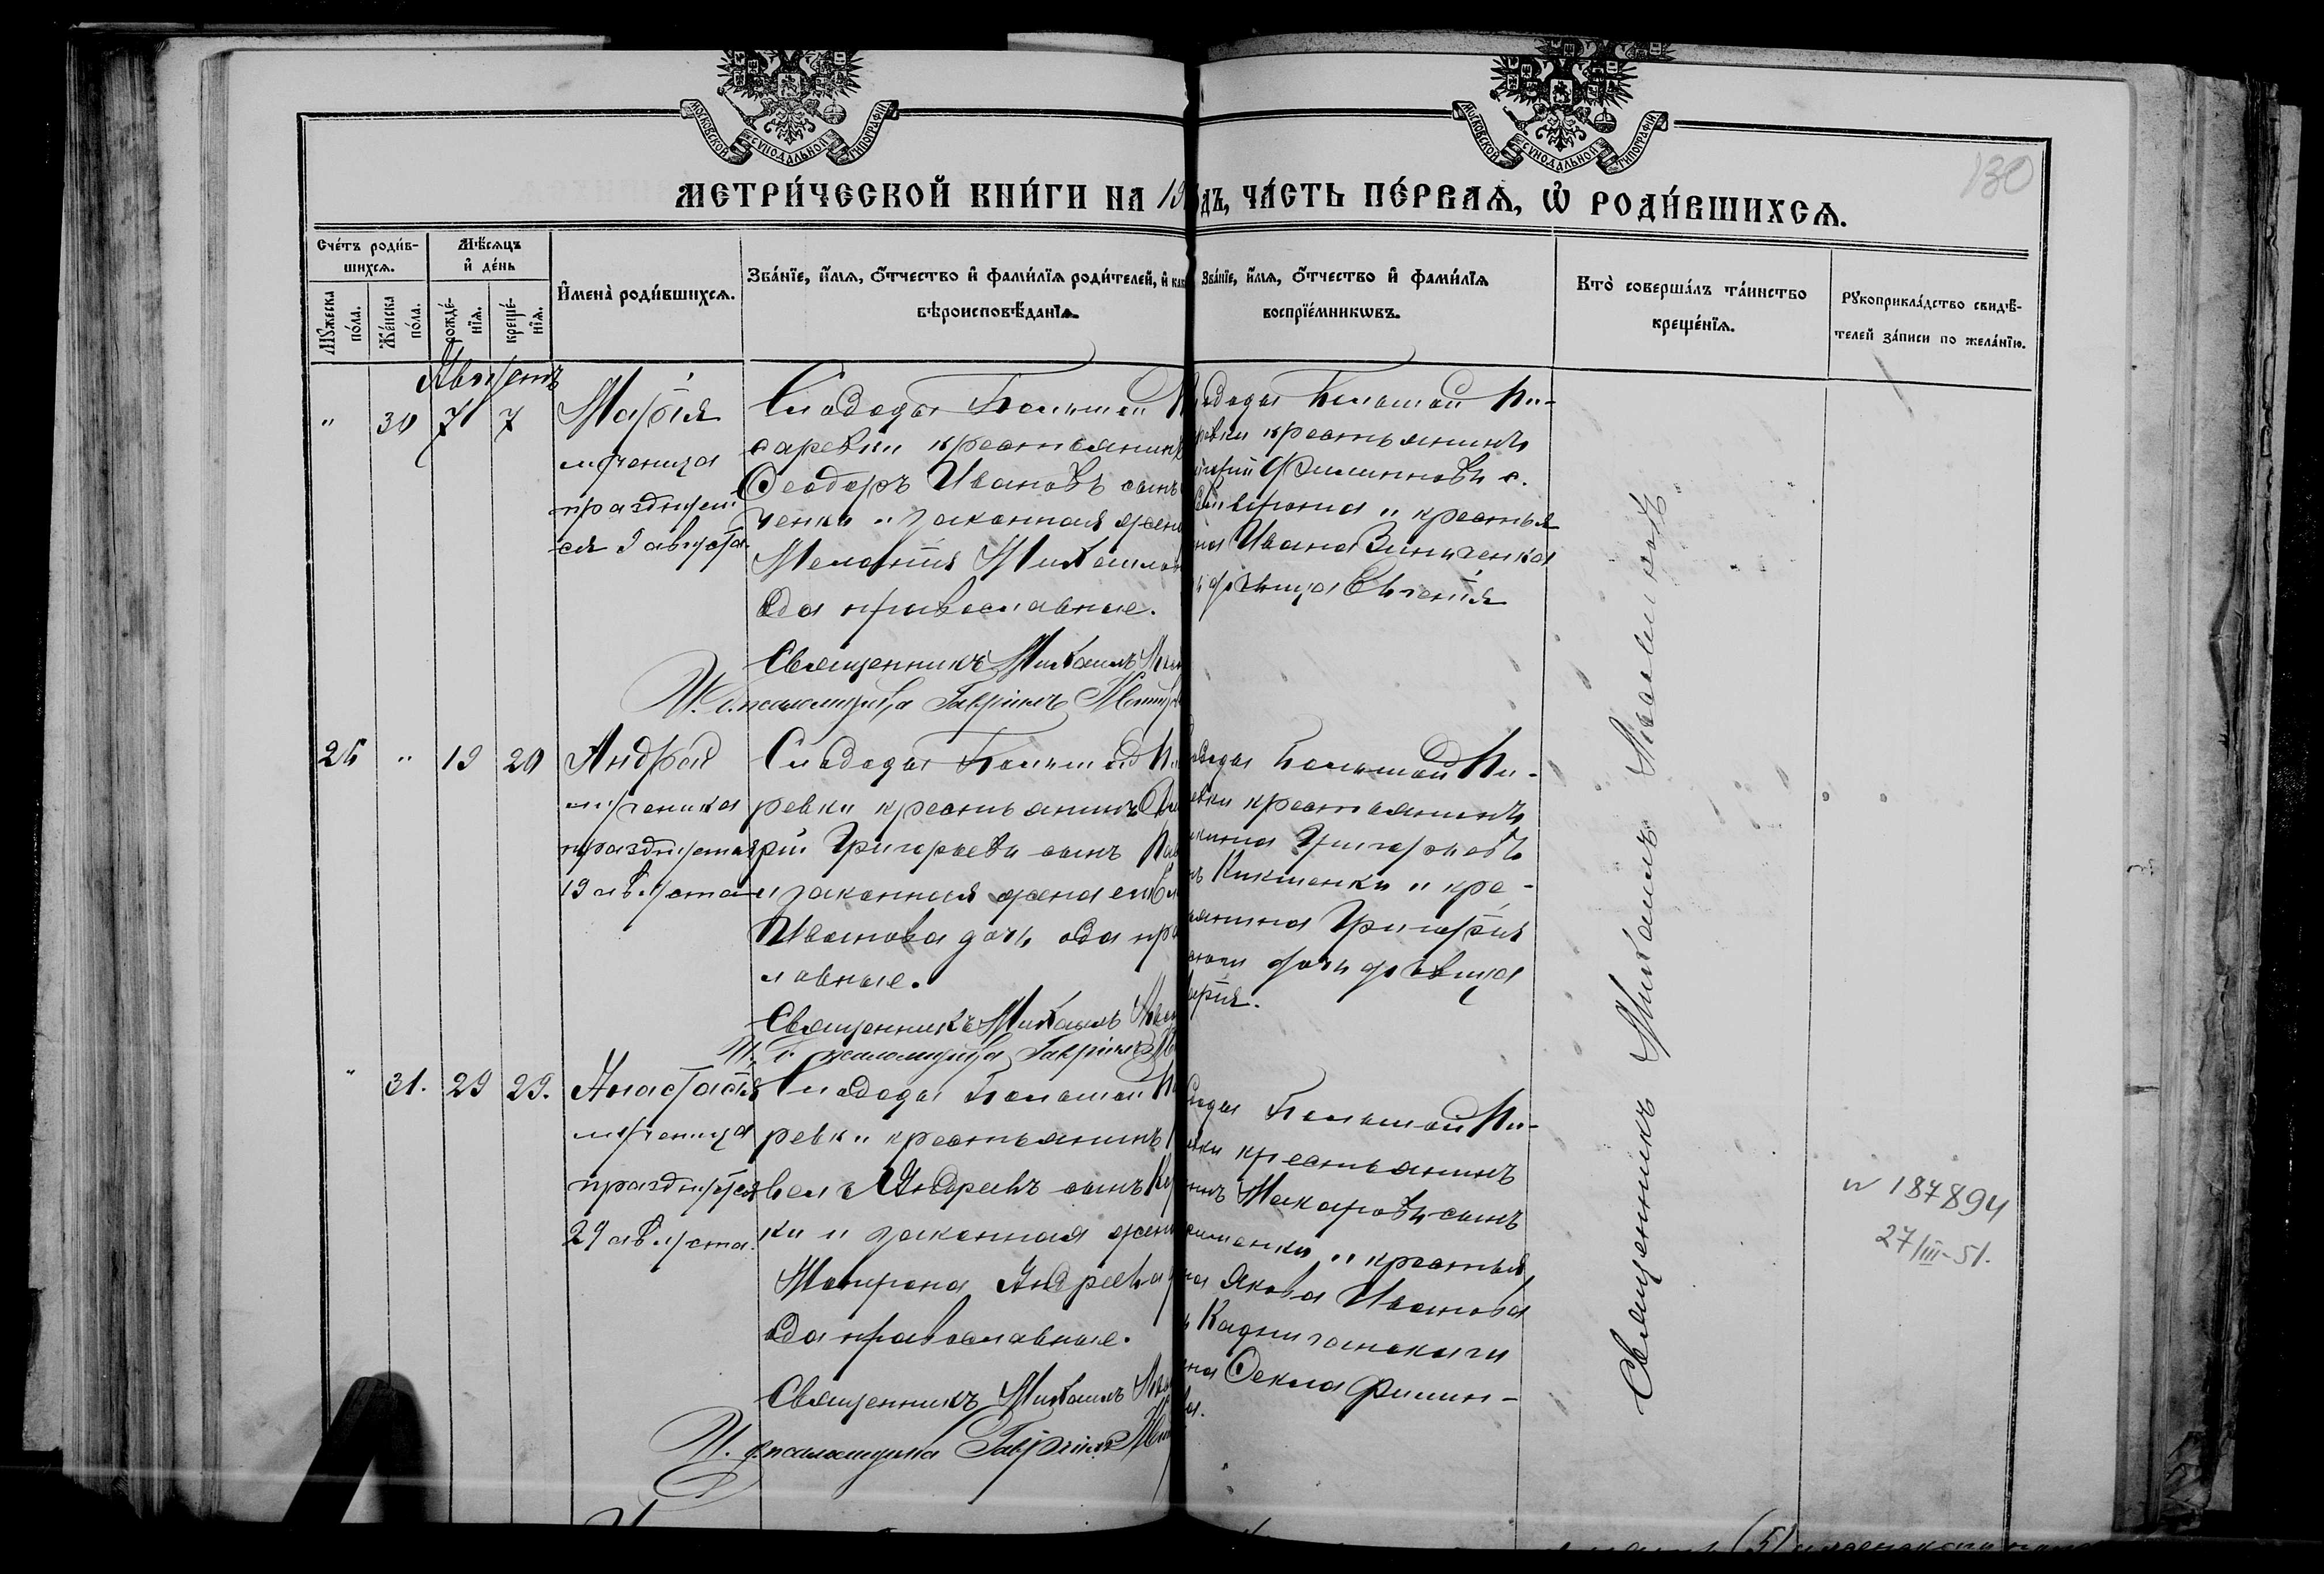 МОСКОВСКОЙ СУНОДАЛЬНОЙ ТИПОГРАФІИ
МОСКОВСКОЙ СУНОДАЛЬНОЙ ТИПОГРАФІИ
130
МЕТРИ́ЧЕСКОЙ КНИ́ГИ НА 19
дъ, ЧА́СТЬ ПЕ́РВАѦ, Ѡ҆ РОДИ́ВШИХСѦ.
Сче́тъ роди́в-
шихсѧ.
Мѣ́сѧцъ
и҆ де́нь
Мꙋ́жеска по́ла.
Же́нска по́ла.
рожде́-
нїѧ.
креще́-
нїѧ.
И҆мена̀ роди́вшихсѧ.
Зва́нїе, и҆́мѧ, ѻ҆́тчество и҆ фами́лїѧ роди́телей, и҆
вѣроисповѣ́данїѧ.
Зва́нїе, и҆́мѧ, ѻ҆́тчество и҆ фами́лїѧ
воспрїе́мникѡвъ.
Кто̀ соверша́лъ та́инство
креще́нїѧ.
Рꙋкоприкла́дство свидѣ́-
телей за́писи по жела́нїю.
Августъ
" 30 7 7
Марія
мученица
празднует
ся 9 августа.
Слободы Большой
саревки крестьянинъ
Ѳеодоръ Ивановъ сынъ
ченко и законная жена
Меланія Михаилов
оба православные.
Священникъ Михаилъ
И. д. псаломщика Гавріилъ
ободы Большой Пи-
ревки крестьянинъ
Филипповъ с.
и крестья
на Ивана Винниченка
дѣвица Евгенія
25 " 19 20
Андрей
мученика
празднуется
19 августа
Слободы Большой
ревки крестьянинъ
рій Григорьевъ сынъ
и законная жена его
Иванова дочь оба пра
лавные.
Священникъ Михаилъ
И. д. псаломщика Гавріилъ
ободы Большой Пи-
ревки крестьянинъ
Григорьевъ
Кикшенко и кре-
янина Григорія
дочь дѣвица
арія.
" 31. 29 29.
Анастасія
мученица
празднуется
29 августа.
Слободы Большой
ревки крестьянинъ
велъ Андреевъ сынъ
ко и законная жена
Матрона Андреева
оба православные.
Священникъ Михаилъ
И. д. псаломщика Гавріилъ
ободы Большой Пи-
евки крестьянинъ
Макаровъ сынъ
и крестья
на Якова Иванова
на Ѳекла Филип-
ва.
Священникъ Михаилъ
N 187894
27/III-51.